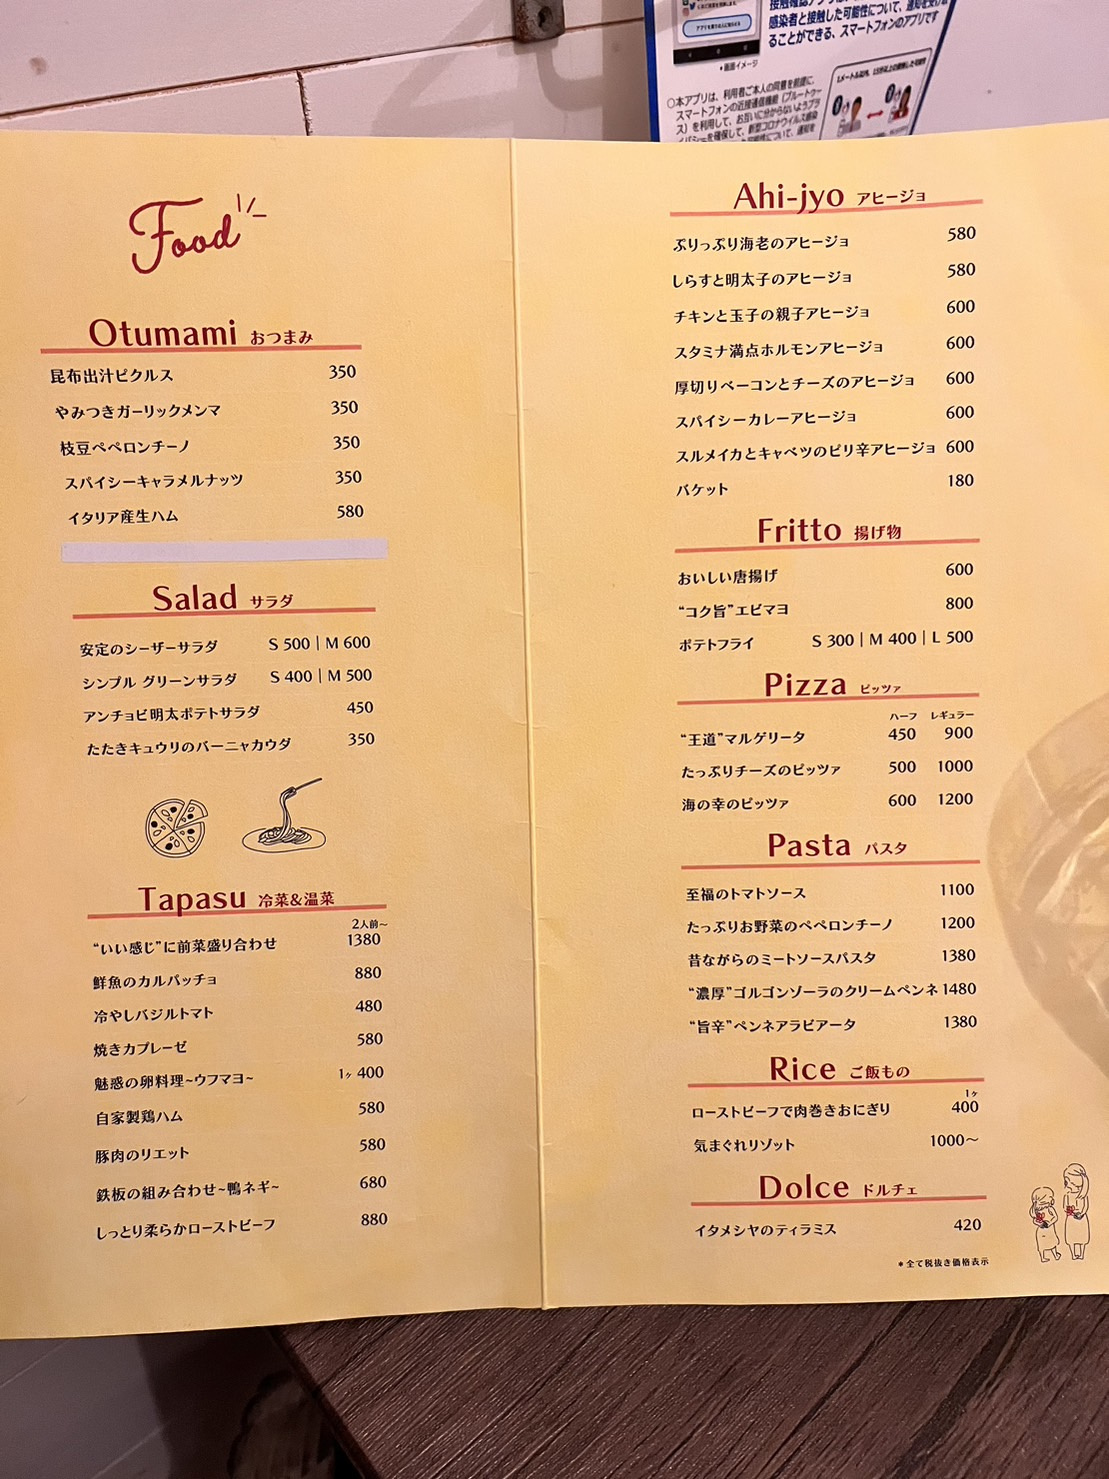 アプリを買う人に知らせる
•画面イメージ
感染者と接触した可能性について、通知を受け取
ることができる、スマートフォンのアプリです
○本アプリは、利用者ご本人の同意を前提に、
スマートフォンの近接通信機能(ブルートゥー
ス)を利用して、お互いに分からないようプラ
イバシーを確保して、新型コロナウイルス感染
Food
Otumami おつまみ
昆布出汁ピクルス 350
やみつきガーリックメンマ 350
枝豆ペペロンチーノ 350
スパイシーキャラメルナッツ 350
イタリア産生ハム 580
Salad サラダ
安定のシーザーサラダ S 500 | M 600
シンプル グリーンサラダ S 400 | M 500
アンチョビ明太ポテトサラダ 450
たたきキュウリのバーニャカウダ 350
Tapasu 冷菜&温菜
2人前~
“いい感じ”に前菜盛り合わせ 1380
鮮魚のカルパッチョ 880
冷やしバジルトマト 480
焼きカプレーゼ 580
魅惑の卵料理~ウフマヨ~ 1ヶ 400
自家製鶏ハム 580
豚肉のリエット 580
鉄板の組み合わせ~鴨ネギ~ 680
しっとり柔らかローストビーフ 880
Ahi-jyo アヒージョ
ぷりっぷり海老のアヒージョ 580
しらすと明太子のアヒージョ 580
チキンと玉子の親子アヒージョ 600
スタミナ満点ホルモンアヒージョ 600
厚切りベーコンとチーズのアヒージョ 600
スパイシーカレーアヒージョ 600
スルメイカとキャベツのピリ辛アヒージョ 600
バケット 180
Fritto 揚げ物
おいしい唐揚げ 600
“コク旨”エビマヨ 800
ポテトフライ S 300 | M 400 | L 500
Pizza ピッツァ
ハーフ レギュラー
“王道”マルゲリータ 450 900
たっぷりチーズのピッツァ 500 1000
海の幸のピッツァ 600 1200
Pasta パスタ
至福のトマトソース 1100
たっぷりお野菜のペペロンチーノ 1200
昔ながらのミートソースパスタ 1380
“濃厚”ゴルゴンゾーラのクリームペンネ 1480
“旨辛”ペンネアラビアータ 1380
Rice ご飯もの
1ヶ
ローストビーフで肉巻きおにぎり 400
気まぐれリゾット 1000〜
Dolce ドルチェ
イタメシヤのティラミス 420
*全て税抜き価格表示